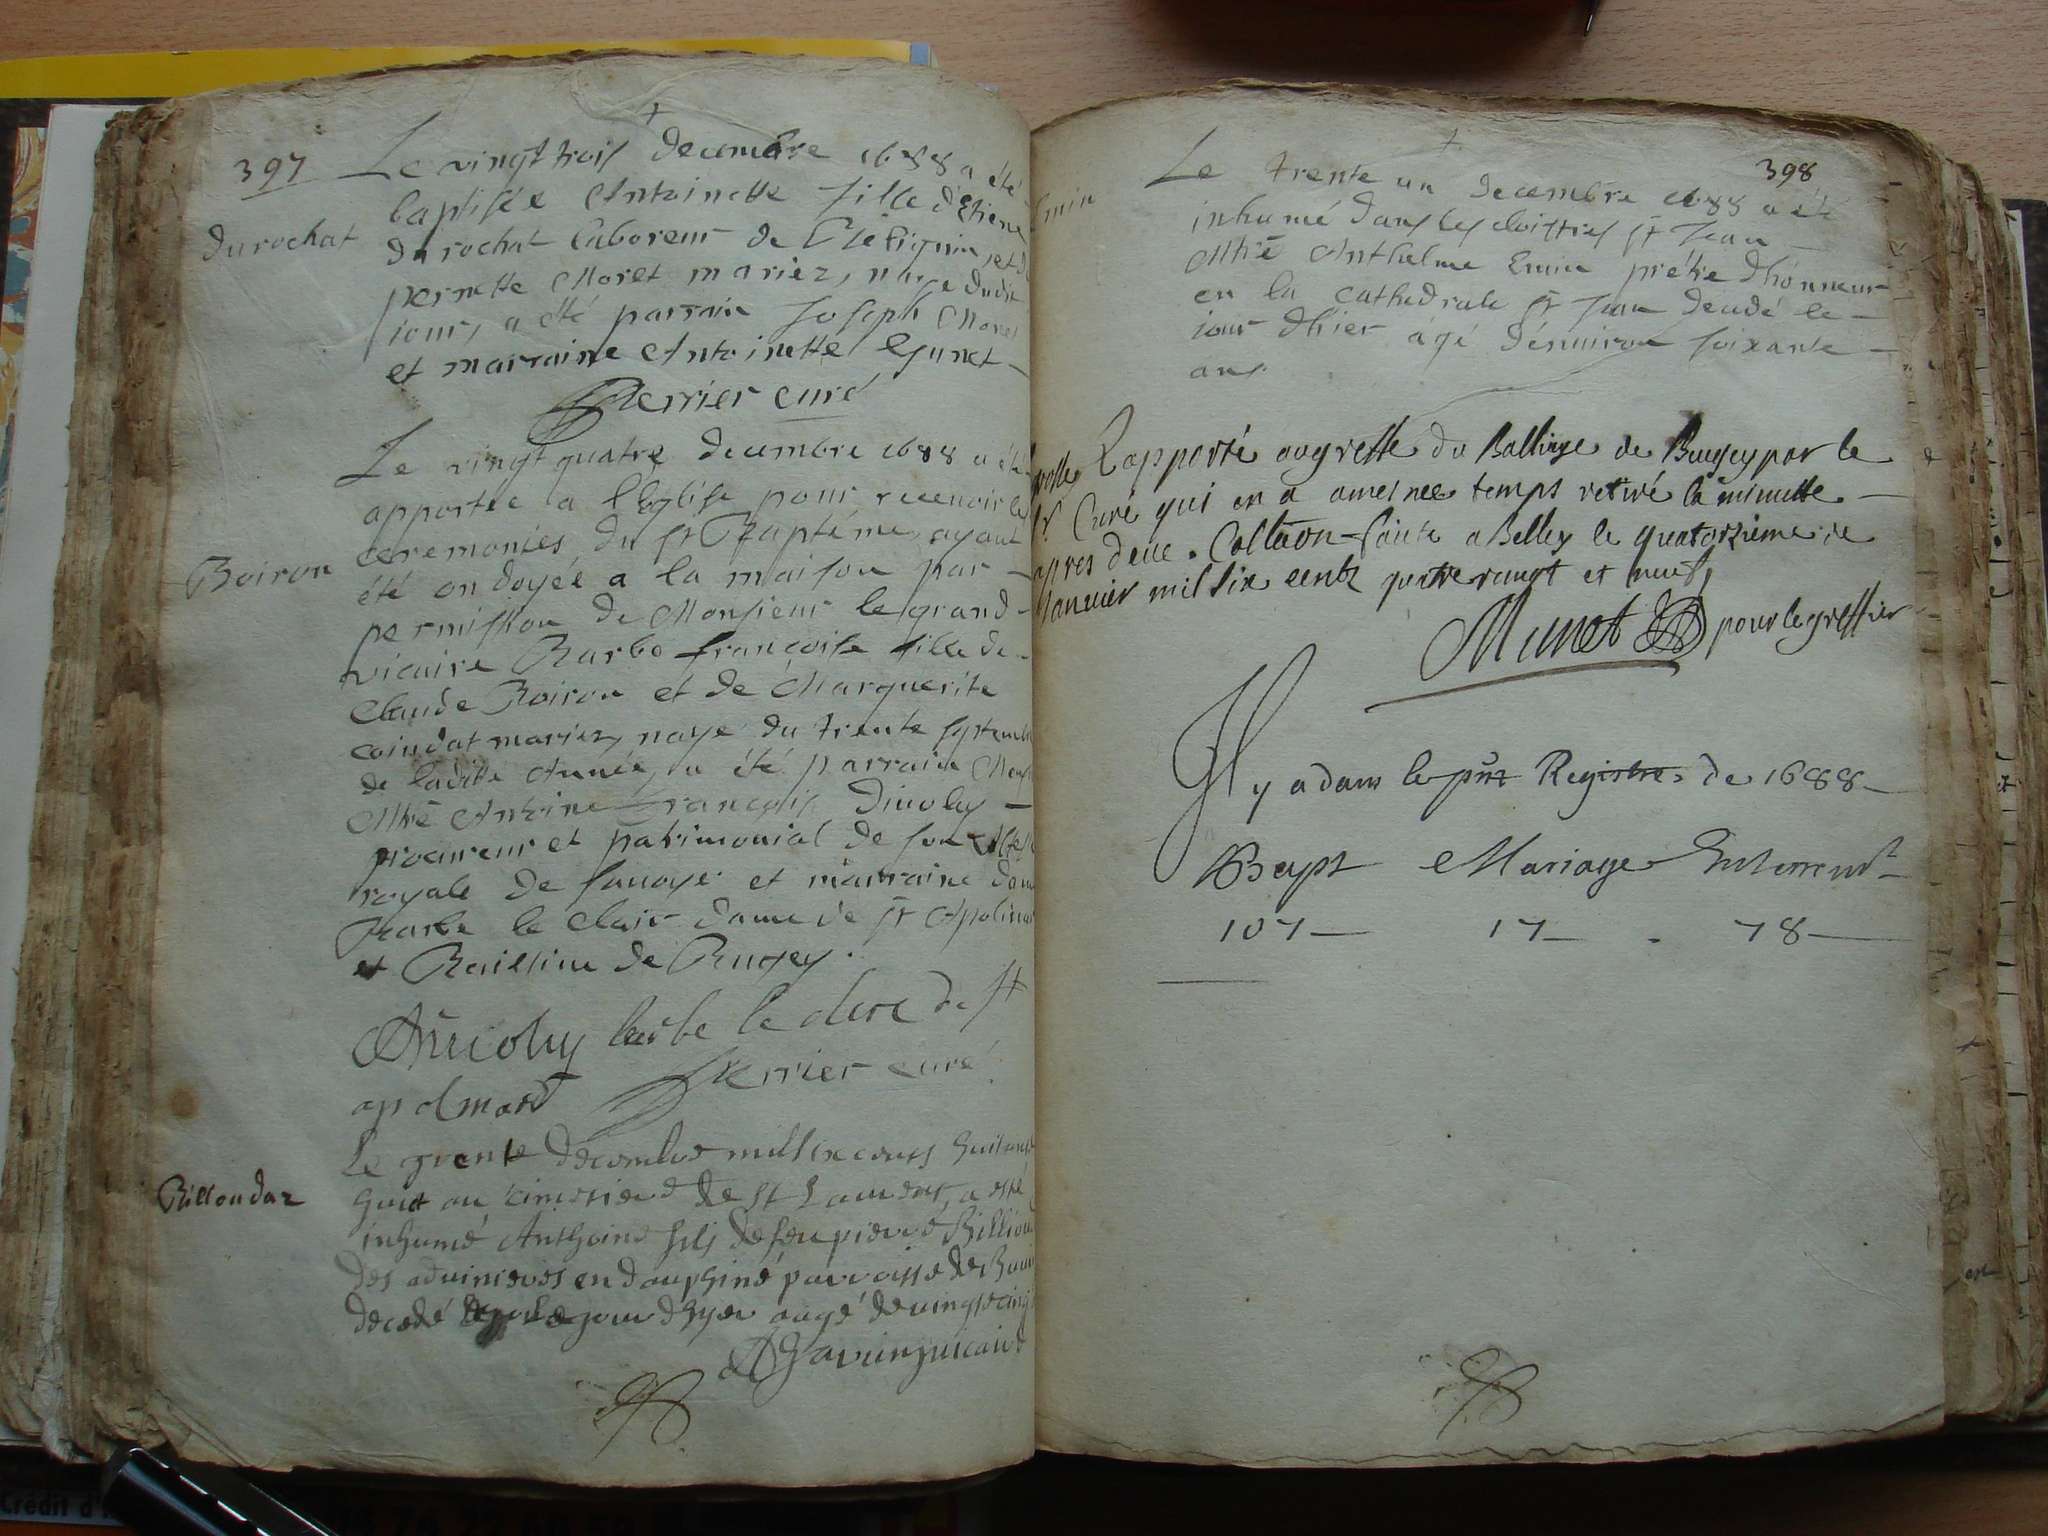 397
Le vingt trois decembre 1688 a été
baptisée Antoinette fille d'Etiene
durochat
durochat laboreur de et de
pernette Moret mariez, naye dudit
jour, a été parrain Joseph Moret
et marraine Antoinette
Perrier curé
Le vingt quatre decembre 1688 a été
apportée a l'Eglise pour recevoir les
ceremonies du st Baptéme, ayant
Boiron
été ondoyée a la maison par
permission de Monsieur le grand
vicaire Barbe françoise fille de
Claude Boiron et de Marguerite
coindat mariez, naye du trente septembre
de ladite Année, a été parrain
Mtre Antoine François Ducoluy
procureur et patrimonial de son Altesse
royale de sauoye et marraine dame
Barbe le Clair dame de st Apolinard
et Baillive de Bugey.
barbe le clere de st
apolinard Perrier curé
Le trente decembre mil six cents huitante
Billoudaz
huit au cimetiere de st Laurent, a esté
inhumé Anthoine fils de feu pierre
des aduinieres en dauphiné parroisse de
decedé le jour d'hyer aagé de vingtcinq
vicaire
398
Emin
Le trente un decembre 1688 a été
inhumé dans les cloistres st Jean
Mtre Anthelme Emin prétre d'honneur
en la cathedrale st Jean decedé le
jour d'hier àgé d'énuiron soixante
ans
Rapporté au greffe du Balliage de Bugey par le
sr Curé qui en a a mesmes temps retiré la minutte
apres deue. Colla͠on faite a Belley le quatorzieme de
Januier mil six centz quatre vingt et neuf,
Munet pour le greffier
Il y a dans le pn̄t Registre de 1688
Bapt Mariage Enterremt
107 17 78